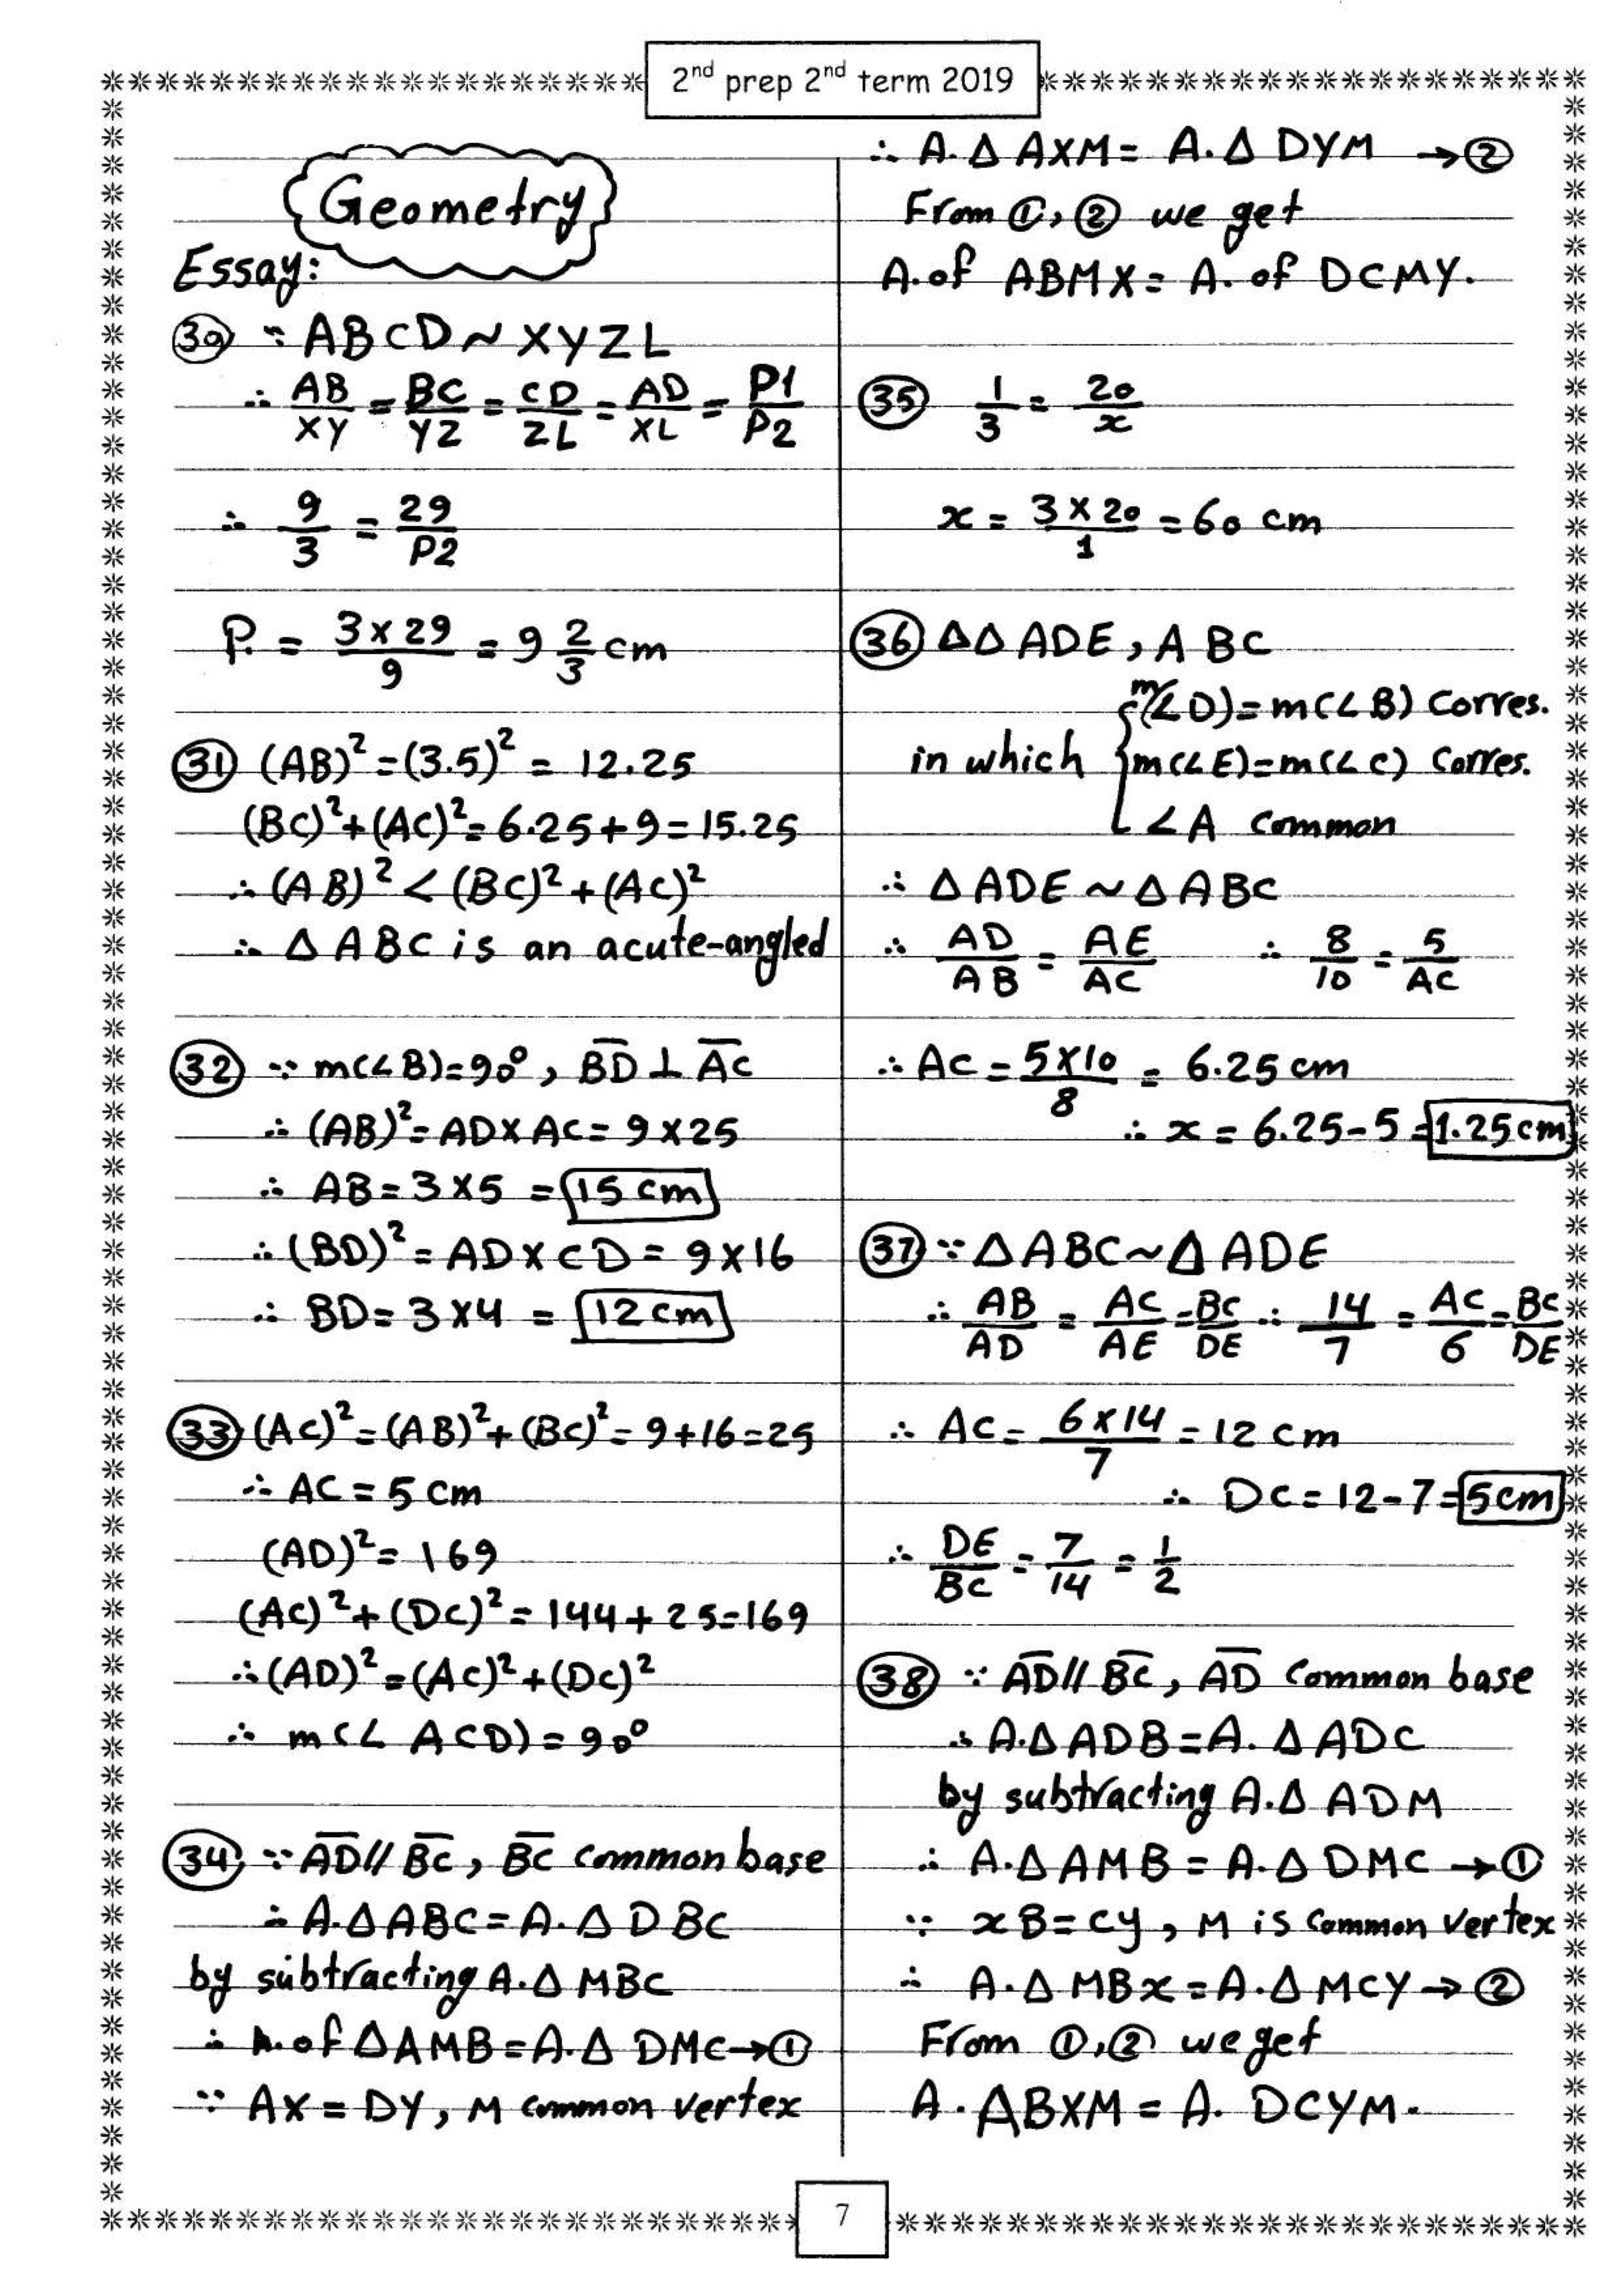 2nd prep 2nd term 2019
Geometry
Essay:
(30) ∵ ABCD ~ XYZL
∴ AB/XY = BC/YZ = CD/ZL = AD/XL = P1/P2
∴ 9/3 = 29/P2
P. = 3×29/9 = 9 2/3 cm
(31) (AB)² = (3.5)² = 12.25
(BC)² + (AC)² = 6.25 + 9 = 15.25
∴ (AB)² < (BC)² + (AC)²
∴ Δ ABC is an acute-angled
(32) ∵ m(∠B) = 90°, B̅D̅ ⊥ A̅C̅
∴ (AB)² = AD × AC = 9 × 25
∴ AB = 3 × 5 = 15 cm
∴ (BD)² = AD × CD = 9 × 16
∴ BD = 3 × 4 = 12 cm
(33) (AC)² = (AB)² + (BC)² = 9 + 16 = 25
∴ AC = 5 cm
(AD)² = 169
(AC)² + (DC)² = 144 + 25 = 169
∴ (AD)² = (AC)² + (DC)²
∴ m(∠ ACD) = 90°
(34) ∵ A̅D̅ // B̅C̅, B̅C̅ common base
∴ A. Δ ABC = A. Δ DBC
by subtracting A. Δ MBC
∴ A. of Δ AMB = A. Δ DMC → ①
∵ AX = DY, M common vertex
∴ A. Δ AXM = A. Δ DYM → ②
From ①, ② we get
A. of ABMX = A. of DCMY.
(35) 1/3 = 20/x
x = 3×20/1 = 60 cm
(36) ΔΔ ADE, ABC
m(∠D) = m(∠B) Corres.
in which { m(∠E) = m(∠C) Corres.
∠A common
∴ Δ ADE ~ Δ ABC
∴ AD/AB = AE/AC ∴ 8/10 = 5/AC
∴ AC = 5×10/8 = 6.25 cm
∴ x = 6.25 - 5 = 1.25 cm
(37) ∵ Δ ABC ~ Δ ADE
∴ AB/AD = AC/AE = BC/DE ∴ 14/7 = AC/6 = BC/DE
∴ AC = 6×14/7 = 12 cm
∴ DC = 12 - 7 = 5 cm
∴ DE/BC = 7/14 = 1/2
(38) ∵ A̅D̅ // B̅C̅, A̅D̅ common base
∴ A. Δ ADB = A. Δ ADC
by subtracting A. Δ ADM
∴ A. Δ AMB = A. Δ DMC → ①
∵ xB = CY, M is common vertex
∴ A. Δ MBx = A. Δ MCY → ②
From ①, ② we get
A. ABXM = A. DCYM.
7